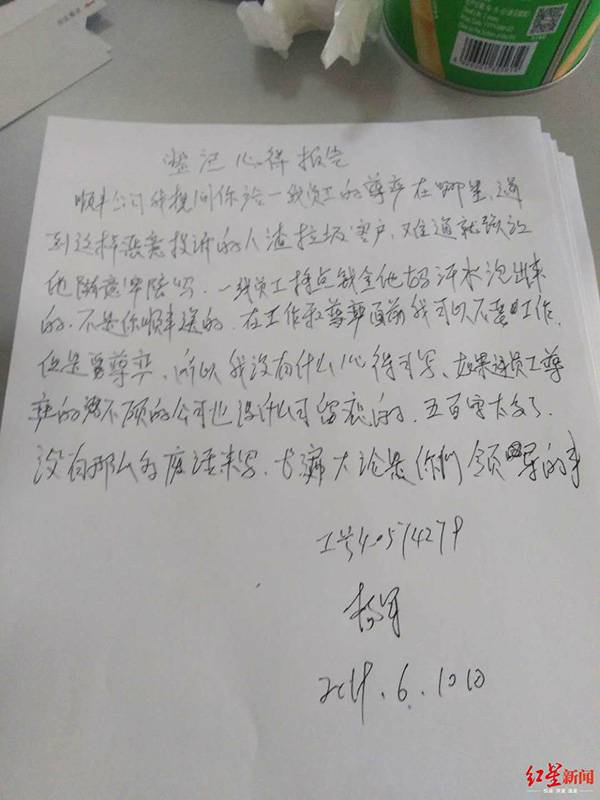 登记心得报告
顺丰公司我想问你给一线员工的尊卑在哪里,遇
到这样恶意投诉的人渣垃圾客户,难道就放任
他随意宰陪吗。一线员工挣点钱全他妈汗水泡出来
的.不是你顺丰送的.在工作和尊卑面前我可以不要工作,
但是要尊卑,所以我没有什么心得可写、如果连员工尊
卑的都不顾的公司也没什么可留恋的,五百字太多了.
没有那么多废话来写.长篇大论是你们领导的事
工号40574279
杨军
6.10日
红星新闻